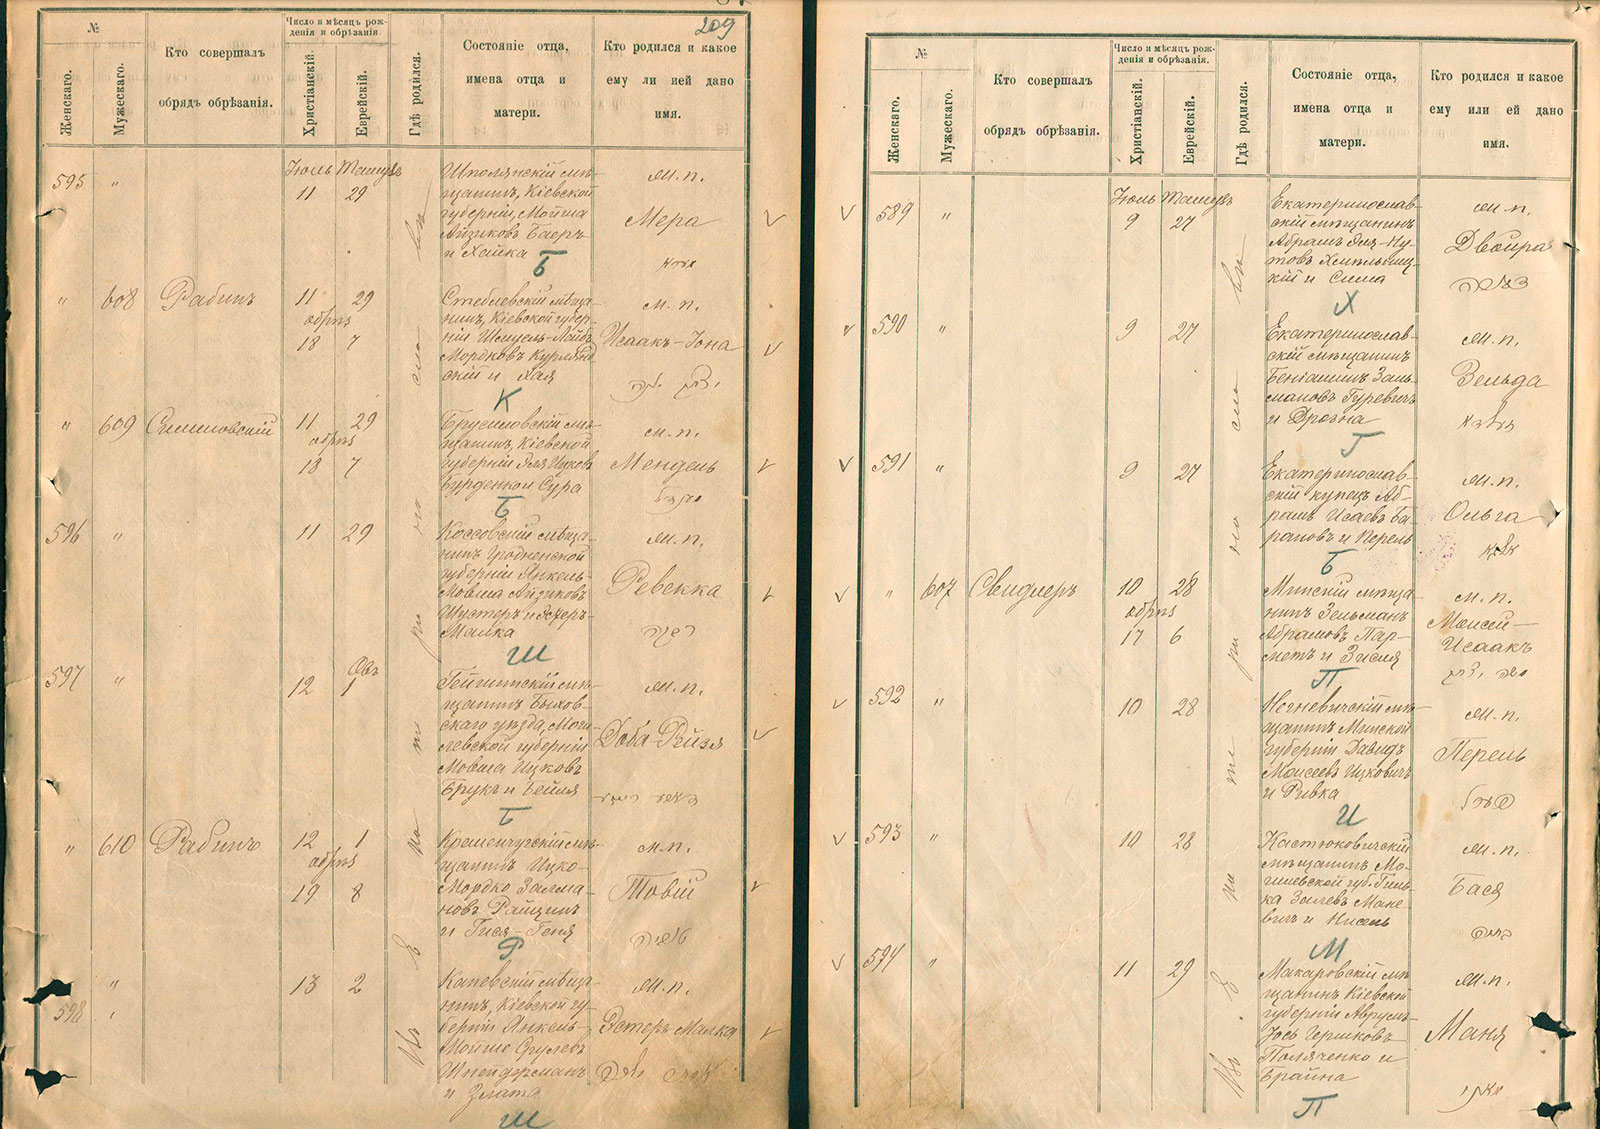 209
№
Женскаго.
Мужескаго.
Кто совершалъ
обрядъ обрѣзанія.
Число и мѣсяцъ рож-
денія и обрѣзанія.
Христіанскій.
Еврейскій.
Гдѣ родился.
Состояніе отца,
имена отца и
матери.
Кто родился и какое
ему ли ией дано
имя.
Въ Е ка те ри но сла вѣ
595 "
Іюль Тамузъ
11 29
Шполянскій мѣ-
щанинъ, Кіевской
губерніи, Мойша
Айзиковъ Баеръ
и Хайка
Б
м.п.
Мера
" 608 Рабинъ
11 29
обрѣз
18 7
Стеблевскій мѣща-
нинъ, Кіевской губер-
ніи Шмуель-Лейбъ
Мордковъ Курлянд
скій и Хая
К
м.п.
Исаакъ-Іона
יצחק יונה
" 609
11 29
обрѣз
18 7
Брусиловскій мѣ-
щанинъ, Кіевской
губерніи Эля Ицковъ
Бурденкои Сура
Б
м.п.
Мендель
מענדיל
596 "
11 29
Коссовскій мѣща-
нинъ Гродненской
губерніи Янкель-
Мовша Айзиковъ
Шустеръ и Эстеръ-
Малка
Ш
м.п.
Ревекка
רבקה
597 "
Овъ
12 1
щанинъ Быхов-
скаго уѣзда, Моги-
левской губерніи
Мовша Ицковъ
Брукъ и Бейля
Б
м.п.
Доба-Рейзя
" 610 Рабинъ
12 1
обрѣз
19 8
Кременчугскій мѣ-
щанинъ Ицко-
Мордко Залма-
новъ Райцинъ
и Гися-Геня
Р
м.п.
Товій
טוביה
598 "
13 2
Каневскій мѣща-
нинъ, Кіевской гу-
берніи Янкель-
Мойше Сруловъ
Шнейдерманъ
и Злата
Ш
м.п.
Эстеръ-Малка
אסתר מלכה
№
Женскаго.
Мужескаго.
Кто совершалъ
обрядъ обрѣзанія.
Число и мѣсяцъ рож-
денія и обрѣзанія.
Христіанскій.
Еврейскій.
Гдѣ родился.
Состояніе отца,
имена отца и
матери.
Кто родился и какое
ему или ей дано
имя.
Въ Е ка те ри но сла вѣ
589 "
Іюль Тамузъ
9 27
Екатеринослав-
скій мѣщанинъ
Абрамъ Эля-Ну-
товъ Хмѣльниц-
кій и Сима
Х
м.п.
Двойра
590 "
9 27
Екатеринослав-
скій мѣщанинъ
Беніаминъ Заль-
мановъ Гуревичъ
и Дрозна
Г
м.п.
Зельда
591 "
9 27
Екатеринослав-
скій купецъ Аб-
рамъ Исаевъ Ба-
рановъ и Перель
Б
м.п.
Ольга
" 607 Свидлеръ
10 28
обрѣз
17 6
Минскій мѣща-
нинъ Зельманъ
Абрамовъ Пар-
метъ и Зисля
П
м.п.
Моисей-
Исаакъ
משה יצחק
592 "
10 28
Негневичскій мѣ-
щанинъ Минской
губерніи Давидъ
Моисеевъ Ицковичъ
и Ривка
И
м.п.
Перель
פערל
593 "
10 28
Костюковичскій
мѣщанинъ Мо-
гилевской губ. Гиль-
ка Залевъ Мане-
вичъ и Нисель
М
м.п.
Бася
594 "
11 29
Макаровскій мѣ-
щанинъ Кіевской
губерніи Аврумъ-
Іось Гершковъ
Поляченко и
Брайна
П
м.п.
Маня
מאני